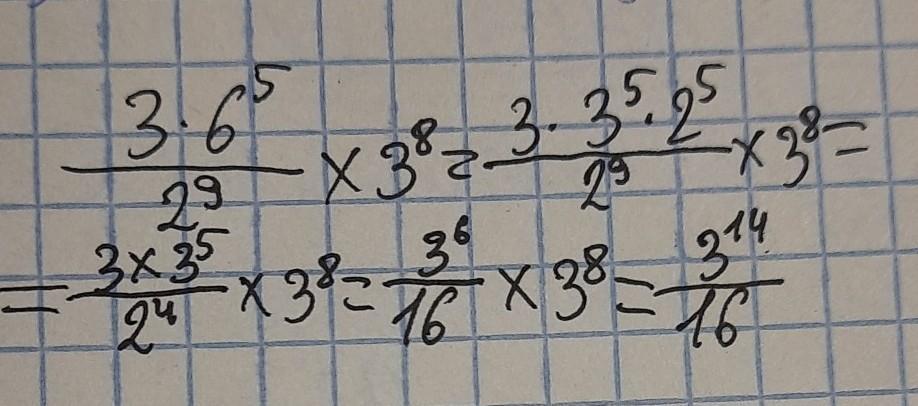 3·6⁵/2⁹ × 3⁸ = 3·3⁵·2⁵/2⁹ × 3⁸ =
= 3×3⁵/2⁴ × 3⁸ = 3⁶/16 × 3⁸ = 3¹⁴/16